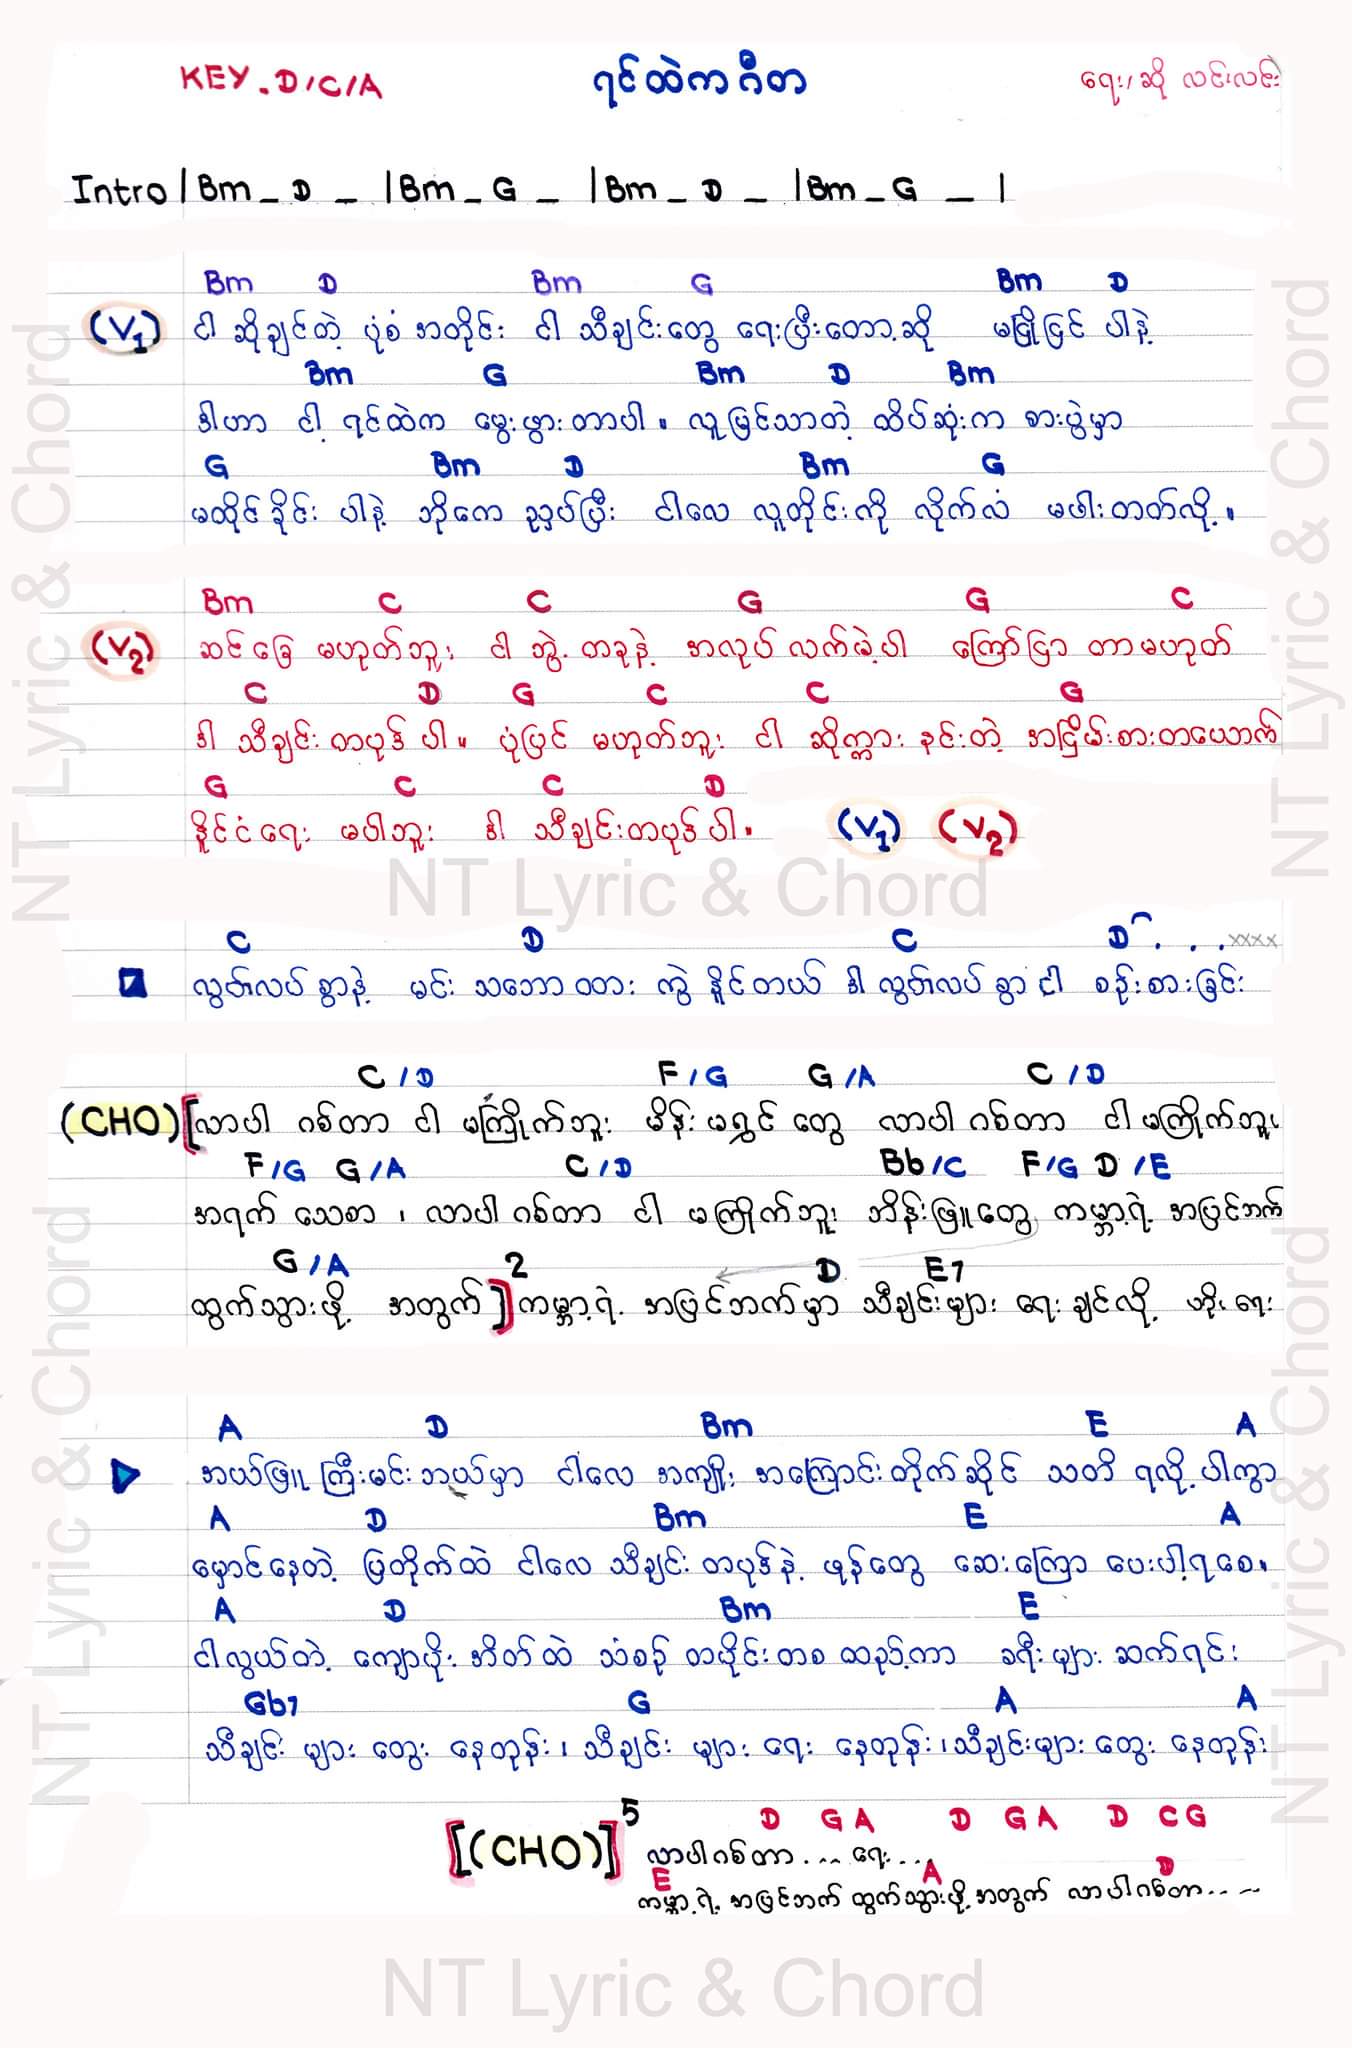 KEY. D/C/A ရင်ထဲကဂီတ ရေး/ဆို လင်းလင်း
Intro | Bm _ D _ | Bm _ G _ | Bm _ D _ | Bm _ G _ |
Bm D Bm G Bm D
(V1) ငါ ဆိုချင်တဲ့ ပုံစံ အတိုင်း ငါ သီချင်းတွေ ရေးပြီးတော့ဆို မငြိုငြင် ပါနဲ့
Bm G Bm D Bm
ဒါဟာ ငါ့ ရင်ထဲက မွေးဖွားတာပါ။ လူမြင်သာတဲ့ ထိပ်ဆုံးက စားပွဲမှာ
G Bm D Bm G
မထိုင်ခိုင်း ပါနဲ့ ဘိုကေ ညှပ်ပြီး ငါလေ လူတိုင်းကို လိုက်လံ မဖါးတတ်လို့။
Bm C C G G C
(V2) ဆင်ခြေ မဟုတ်ဘူး ငါ ဘွဲ့တခုနဲ့ အလုပ်လက်မဲ့ပါ ကြော်ငြာ တာမဟုတ်
C D G C C G
ဒါ သီချင်းတပုဒ် ပါ။ ပုံပြင် မဟုတ်ဘူး ငါ ဆိုက္ကား နင်းတဲ့ အငြိမ်းစားတယောက်
G C C D
နိူင်ငံရေး မပါဘူး ဒါ သီချင်းတပုဒ်ပါ။ (V1) (V2)
C D C D . . . xxxx
လွတ်လပ်စွာနဲ့ မင်း သဘောထား ကွဲနိူင်တယ် ဒါ လွတ်လပ်စွာ ငါ စဉ်းစားခြင်း
C/D F/G G/A C/D
(CHO) [လာပါ ဂစ်တာ ငါ မကြိုက်ဘူး မိန်းမရွှင်တွေ လာပါ ဂစ်တာ ငါ မကြိုက်ဘူး
F/G G/A C/D Bb/C F/G D/E
အရက် သေစာ ၊ လာပါ ဂစ်တာ ငါ မကြိုက်ဘူး ဘိန်းဖြူတွေ ကမ္ဘာ့ရဲ့ အပြင်ဘက်
G/A 2 D E7
ထွက်သွားဖို့ အတွက်] ကမ္ဘာ့ရဲ့ အပြင်ဘက်မှာ သီချင်းများ ရေးချင်လို့ ဟိုး ရေး
A D Bm E A
အယ်ဖြူ ကြီးမင်းဘယ်မှာ ငါလေ အကျိုး အကြောင်းတိုက်ဆိုင် သတိ ရလို့ပါကွာ
A D Bm E A
မှောင်နေတဲ့ ပြတိုက်ထဲ ငါလေ သီချင်း တပုဒ်နဲ့ ဖုန်တွေ ဆေးကြော ပေးပါ့ရစေ။
A D Bm E
ငါလွယ်တဲ့ ကျောပိုးအိတ်ထဲ သံစဉ် တပိုင်းတစ ထည့်ကာ ခရီးများ ဆက်ရင်း
Gb7 G A A
သီချင်း များ တွေး နေတုန်း ၊ သီချင်း များ ရေး နေတုန်း ၊ သီချင်းများ တွေး နေတုန်း
[(CHO)]5 D G A D G A D C G
လာပါဂစ်တာ .... ရေး ....
E A D
ကမ္ဘာ့ရဲ့ အပြင်ဘက် ထွက်သွားဖို့ အတွက် လာပါဂစ်တာ.....
NT Lyric & Chord
NT Lyric & Chord
NT Lyric & Chord
NT Lyric & Chord
NT Lyric & Chord
NT Lyric & Chord